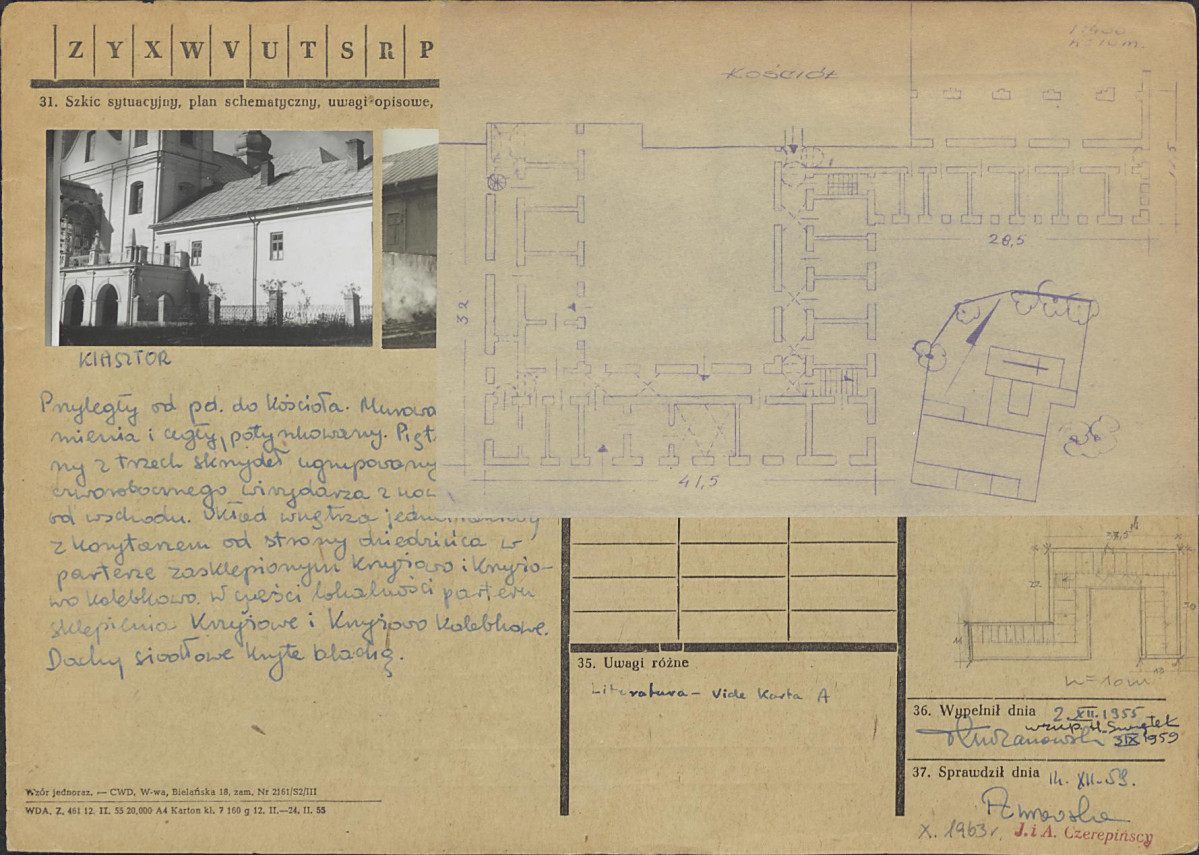 Z Y X W V U T S R P
31. Szkic sytuacyjny, plan schematyczny, uwagi opisowe,
1:400
h=10m.
KOŚCIÓŁ
11,5
28,5
32
41,5
KlASZTOR
Przyległy od pd. do Kościoła. Murowa
mienia i cegły, potynkowany. Pięt
ny z trzech skrzydeł ugrupowany
czworobocznego wirydarza z
od wschodu. Układ wnętrza
z korytarzem od strony dziedzińca w
parterze zasklepionym Krzyżowo i Krzyżo-
wo Kolebkowo. W części lokalności parteru
sklepienia Krzyżowe i Krzyżowo Kolebkowe.
Dachy siodłowe kryte blachą.
Wzór jednoraz. — CWD, W-wa, Bielańska 18, zam. Nr 2161/S2/III
WDA. Z. 461 12. II. 55 20,000 A4 Karton kl. 7 160 g 12. II.—24. II. 55
35. Uwagi różne
Literatura – Vide Karta A
38,5
22
11
30
10
h=10m
36. Wypełnił dnia 2.XII.1955
uzup. H. Świątek
3 IX 1959
37. Sprawdził dnia 14. XII-59.
X. 1963 r. J. i A. Czerepińscy